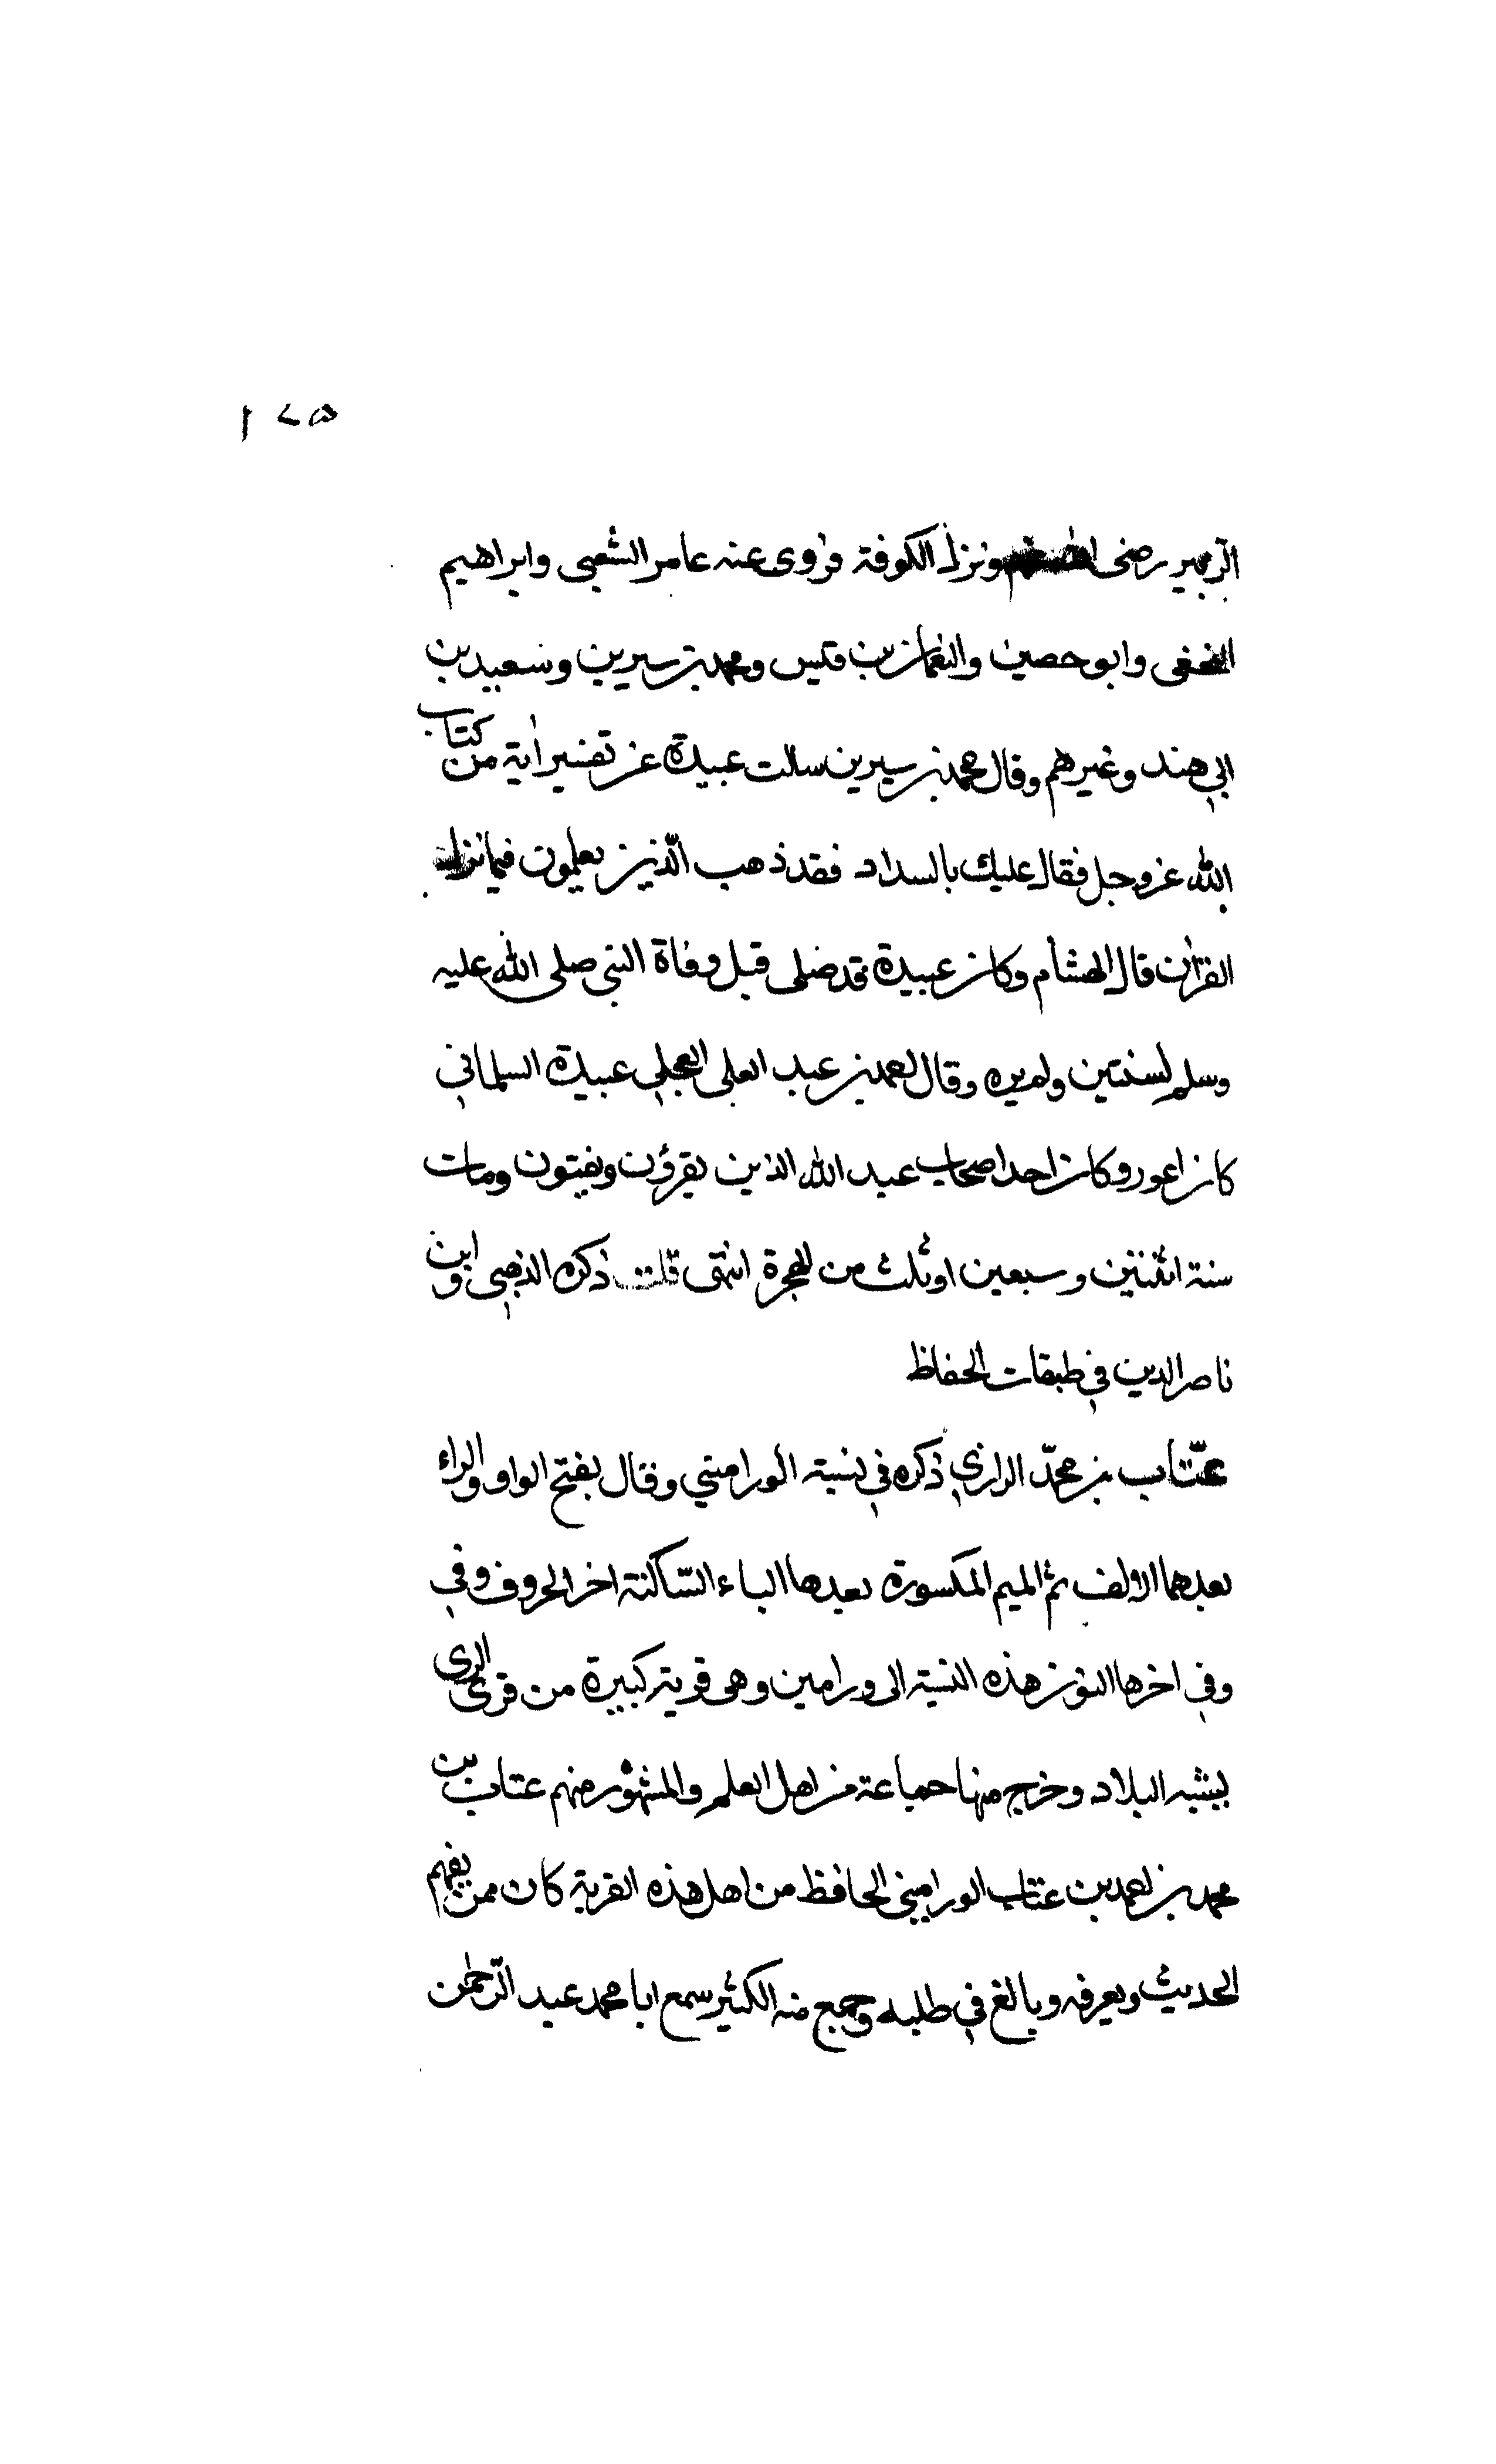 ١٧٥
الزبير رضى الله عنهم ونزل الكوفة وروى عنه عامر الشعبى وابراهيم
النخعى وابو حصين والنعمان بن قيس ومحمد بن سيرين وسعيد بن
ابي هند وغيرهم وقال محمد بن سيرين سالت عبيدة عن تفسير اية من كتاب
الله عز وجل فقال عليك بالسداد فقد ذهب الّذين يعلمون فيما نزل
القران قال الهشام وكان عبيدة قد صلى قبل وفاة النبى صلى الله عليه
وسلم لسنتين ولم يره وقال احمد بن عبد العلى العجلي عبيدة السلماني
كان اعور وكان احد اصحاب عبد الله الذين يقرؤن ويفتون ومات
سنة اثنتين وسبعين او ثلث من الهجرة انتهى قلت ذكره الذهبى وابن
ناصر الدين في طبقات الحفاظ
عتّاب بن محمّد الرازي ذكره في نسبة الورامينى وقال بفتح الواو والراء
بعدهما الالف ثم الميم المكسورة بعدها الياء السّاكنة اخر الحروف وفي
وفي اخرها النون هذه النسبة الى ورامين وهى قرية كبيرة من قرى الرى
يشبه البلاد وخرج منها جماعة من اهل العلم والمشهور منهم عتاب بن
محمد بن احمد بن عتاب الورامينى الحافظ من اهل هذه القرية كان ممن يفهم
الحديث ويعرفه وبالغ في طلبه وجمع منه الكثير سمع ابا محمد عبد الرّحمن